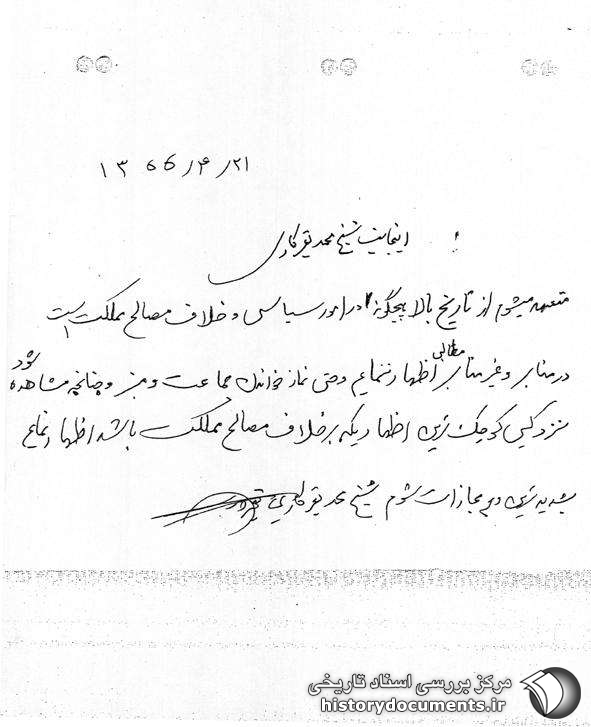 ۱۳۵۵/۴/۲۱
اینجانب شیخ محمد تقی
متعهد میشوم از تاریخ بالا هیچگونه در امور سیاسی و خلاف مصالح مملکت است
در منابر و غیر منابر مطالبی اظهار ننمایم و حتی نماز خواندن جماعت و منبر و چنانچه مشاهده شود
نزد کسی کوچک ترین اظهاریکه برخلاف مصالح مملکت باشد اظهار نمایم
بشدیدترین وجه مجازات شوم شیخ محمد تقی
مرکز بررسی اسناد تاریخی
historydocuments.ir